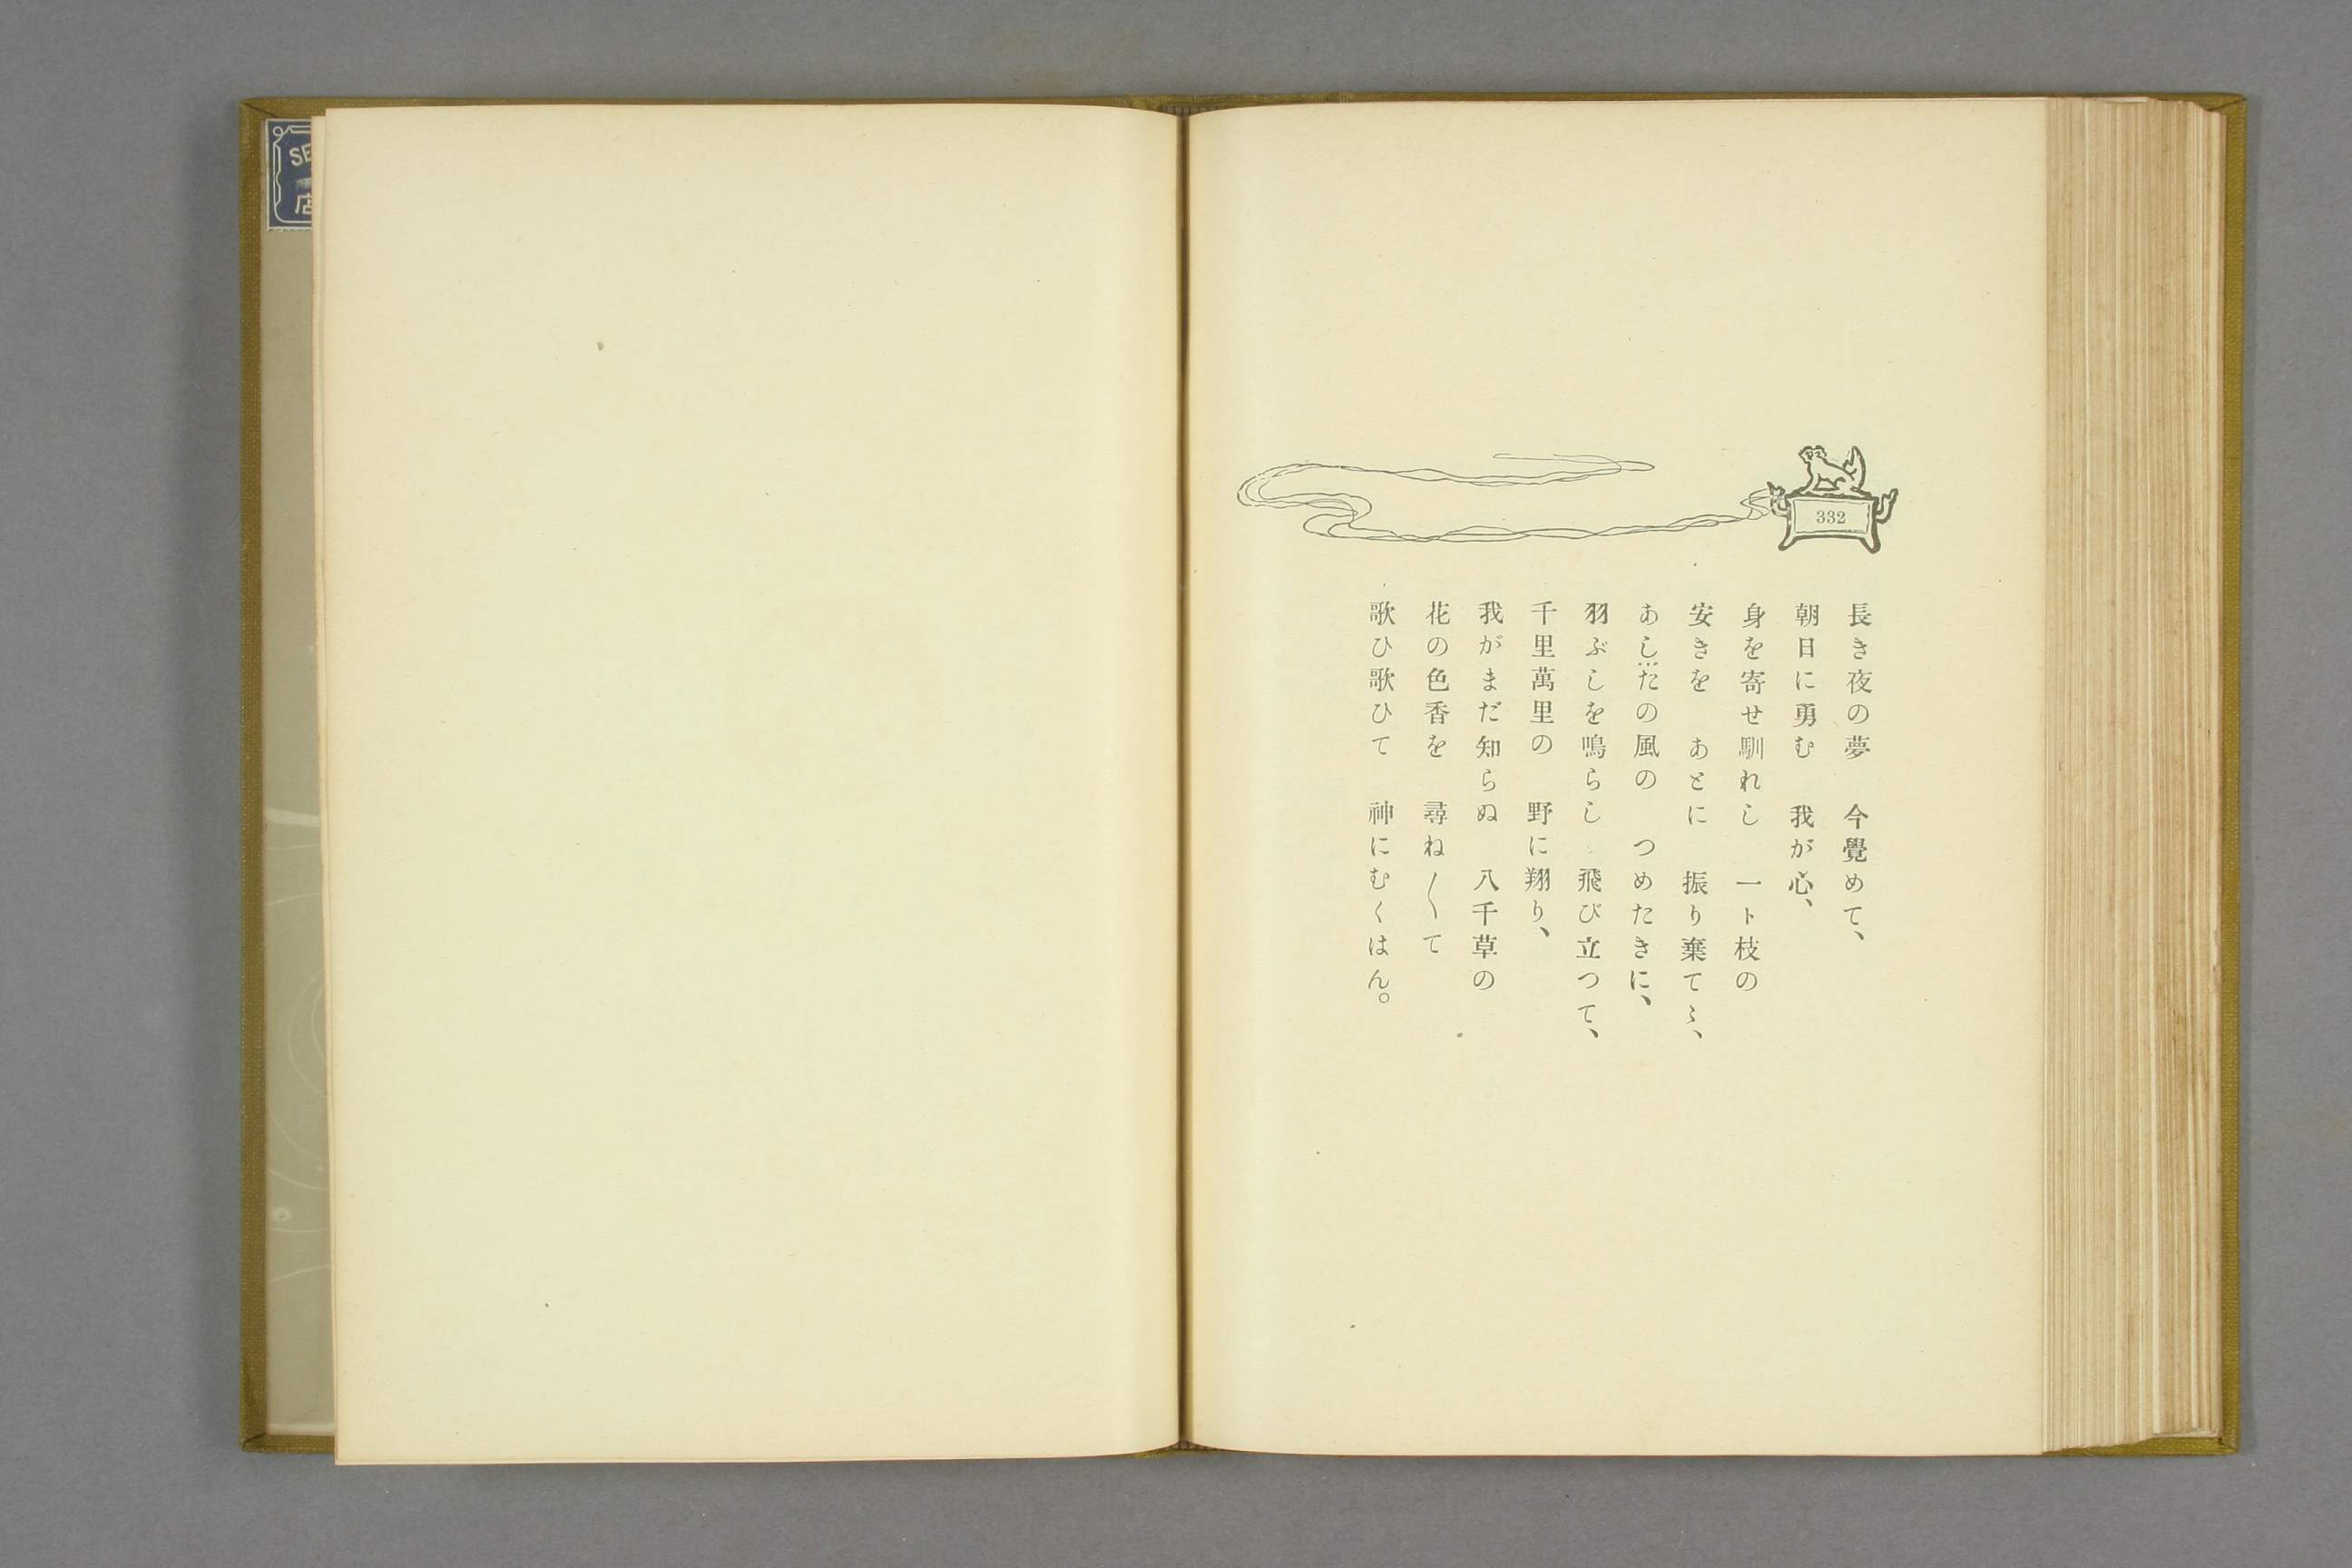 332
長き夜の夢　今覺めて、
朝日に勇む　我が心、
身を寄せ馴れし　一ト枝の
安きを　あとに　振り棄てゝ、
あしたの風の　つめたきに、
羽ぶしを鳴らし　飛び立つて、
千里萬里の　野に翔り、
我がまだ知らぬ　八千草の
花の色香を　尋ね〱て
歌ひ歌ひて　神にむくはん。
SE
店